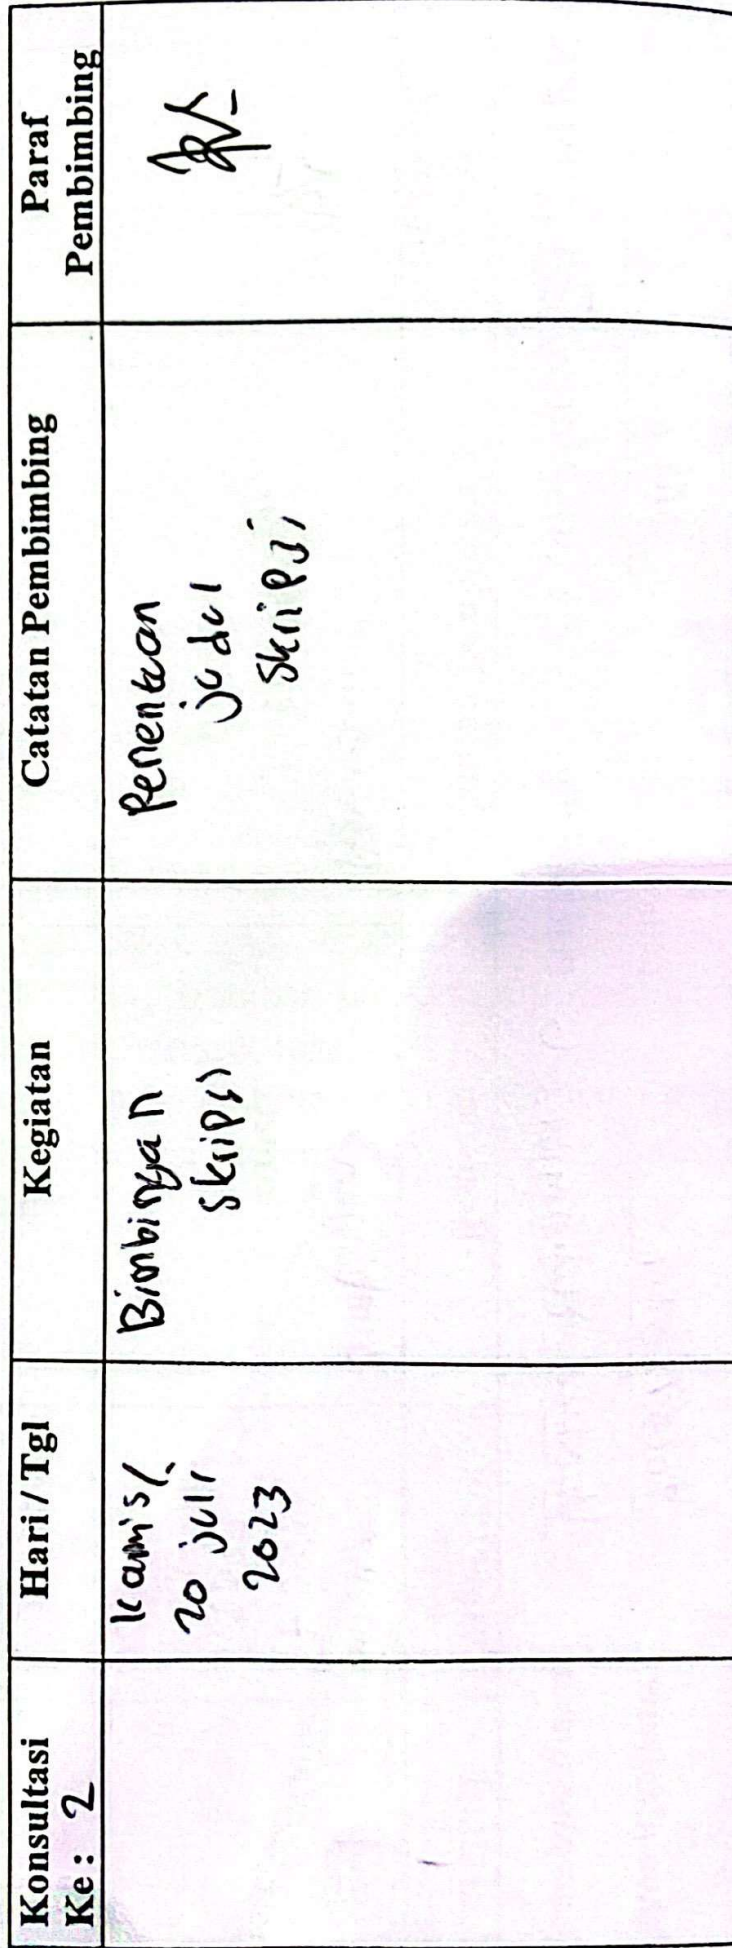 Konsultasi
Ke : 2
Hari / Tgl
Kegiatan
Catatan Pembimbing
Paraf
Pembimbing
Kamis /
20 juli
2023
Bimbingan
Skripsi
Penentuan
judul
Skripsi